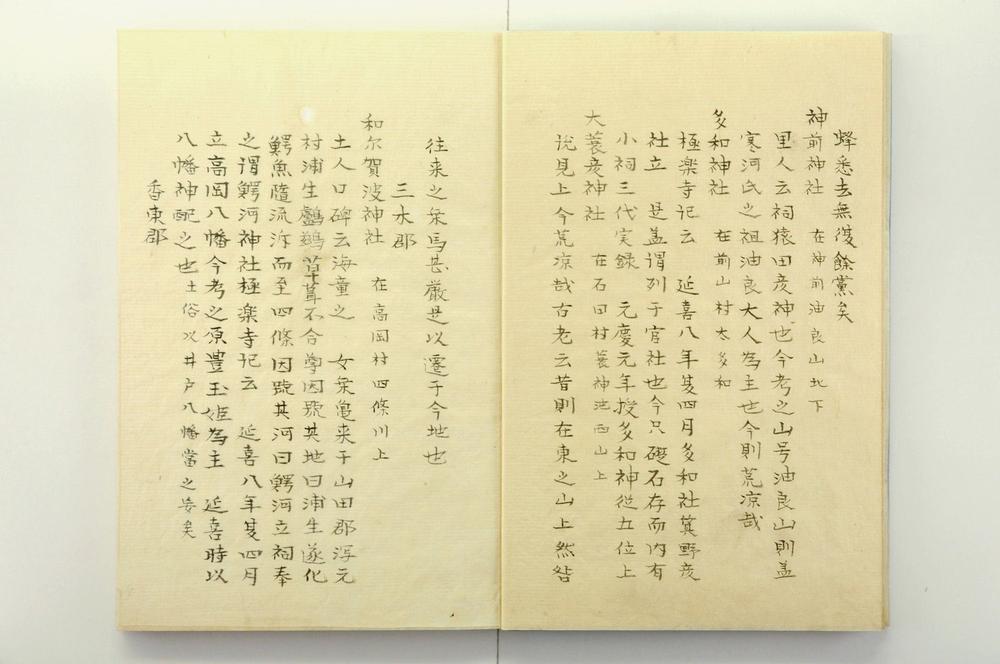 蜂悉去無復餘黨矣
神前神社 在神前油良山北下
里人云祠猿田彦神也今考之山号油良山則盖
寒河氏之祖油良大人為主也今則荒凉哉
多和神社 在前山村太多和
極楽寺記云 延喜八年夏四月多和社箕野彦
社立 是盖謂列于官社也今只礎石存而内有
小祠三代実録 元慶元年授多和神従五位上
大蓑彦神社 在石田村蓑神池西山上
説見上今荒凉哉古老云昔則在東之山上然昔
往来之乗馬甚厳是以遷于今地也
三木郡
和尓賀波神社 在高岡村四條川上
土人口碑云海童之 女乗亀来于山田郡潟元
村浦生鸕鷀草葺不合尊因號其地曰浦生遂化
鰐魚隨流泝而至四條因號其河曰鰐河立祠奉
之謂鰐河神社極楽寺記云 延喜八年夏四月
立高岡八幡今考之原豊玉姫為主 延喜時以
八幡神配之也土俗以井戸八幡當之妄矣
香東郡